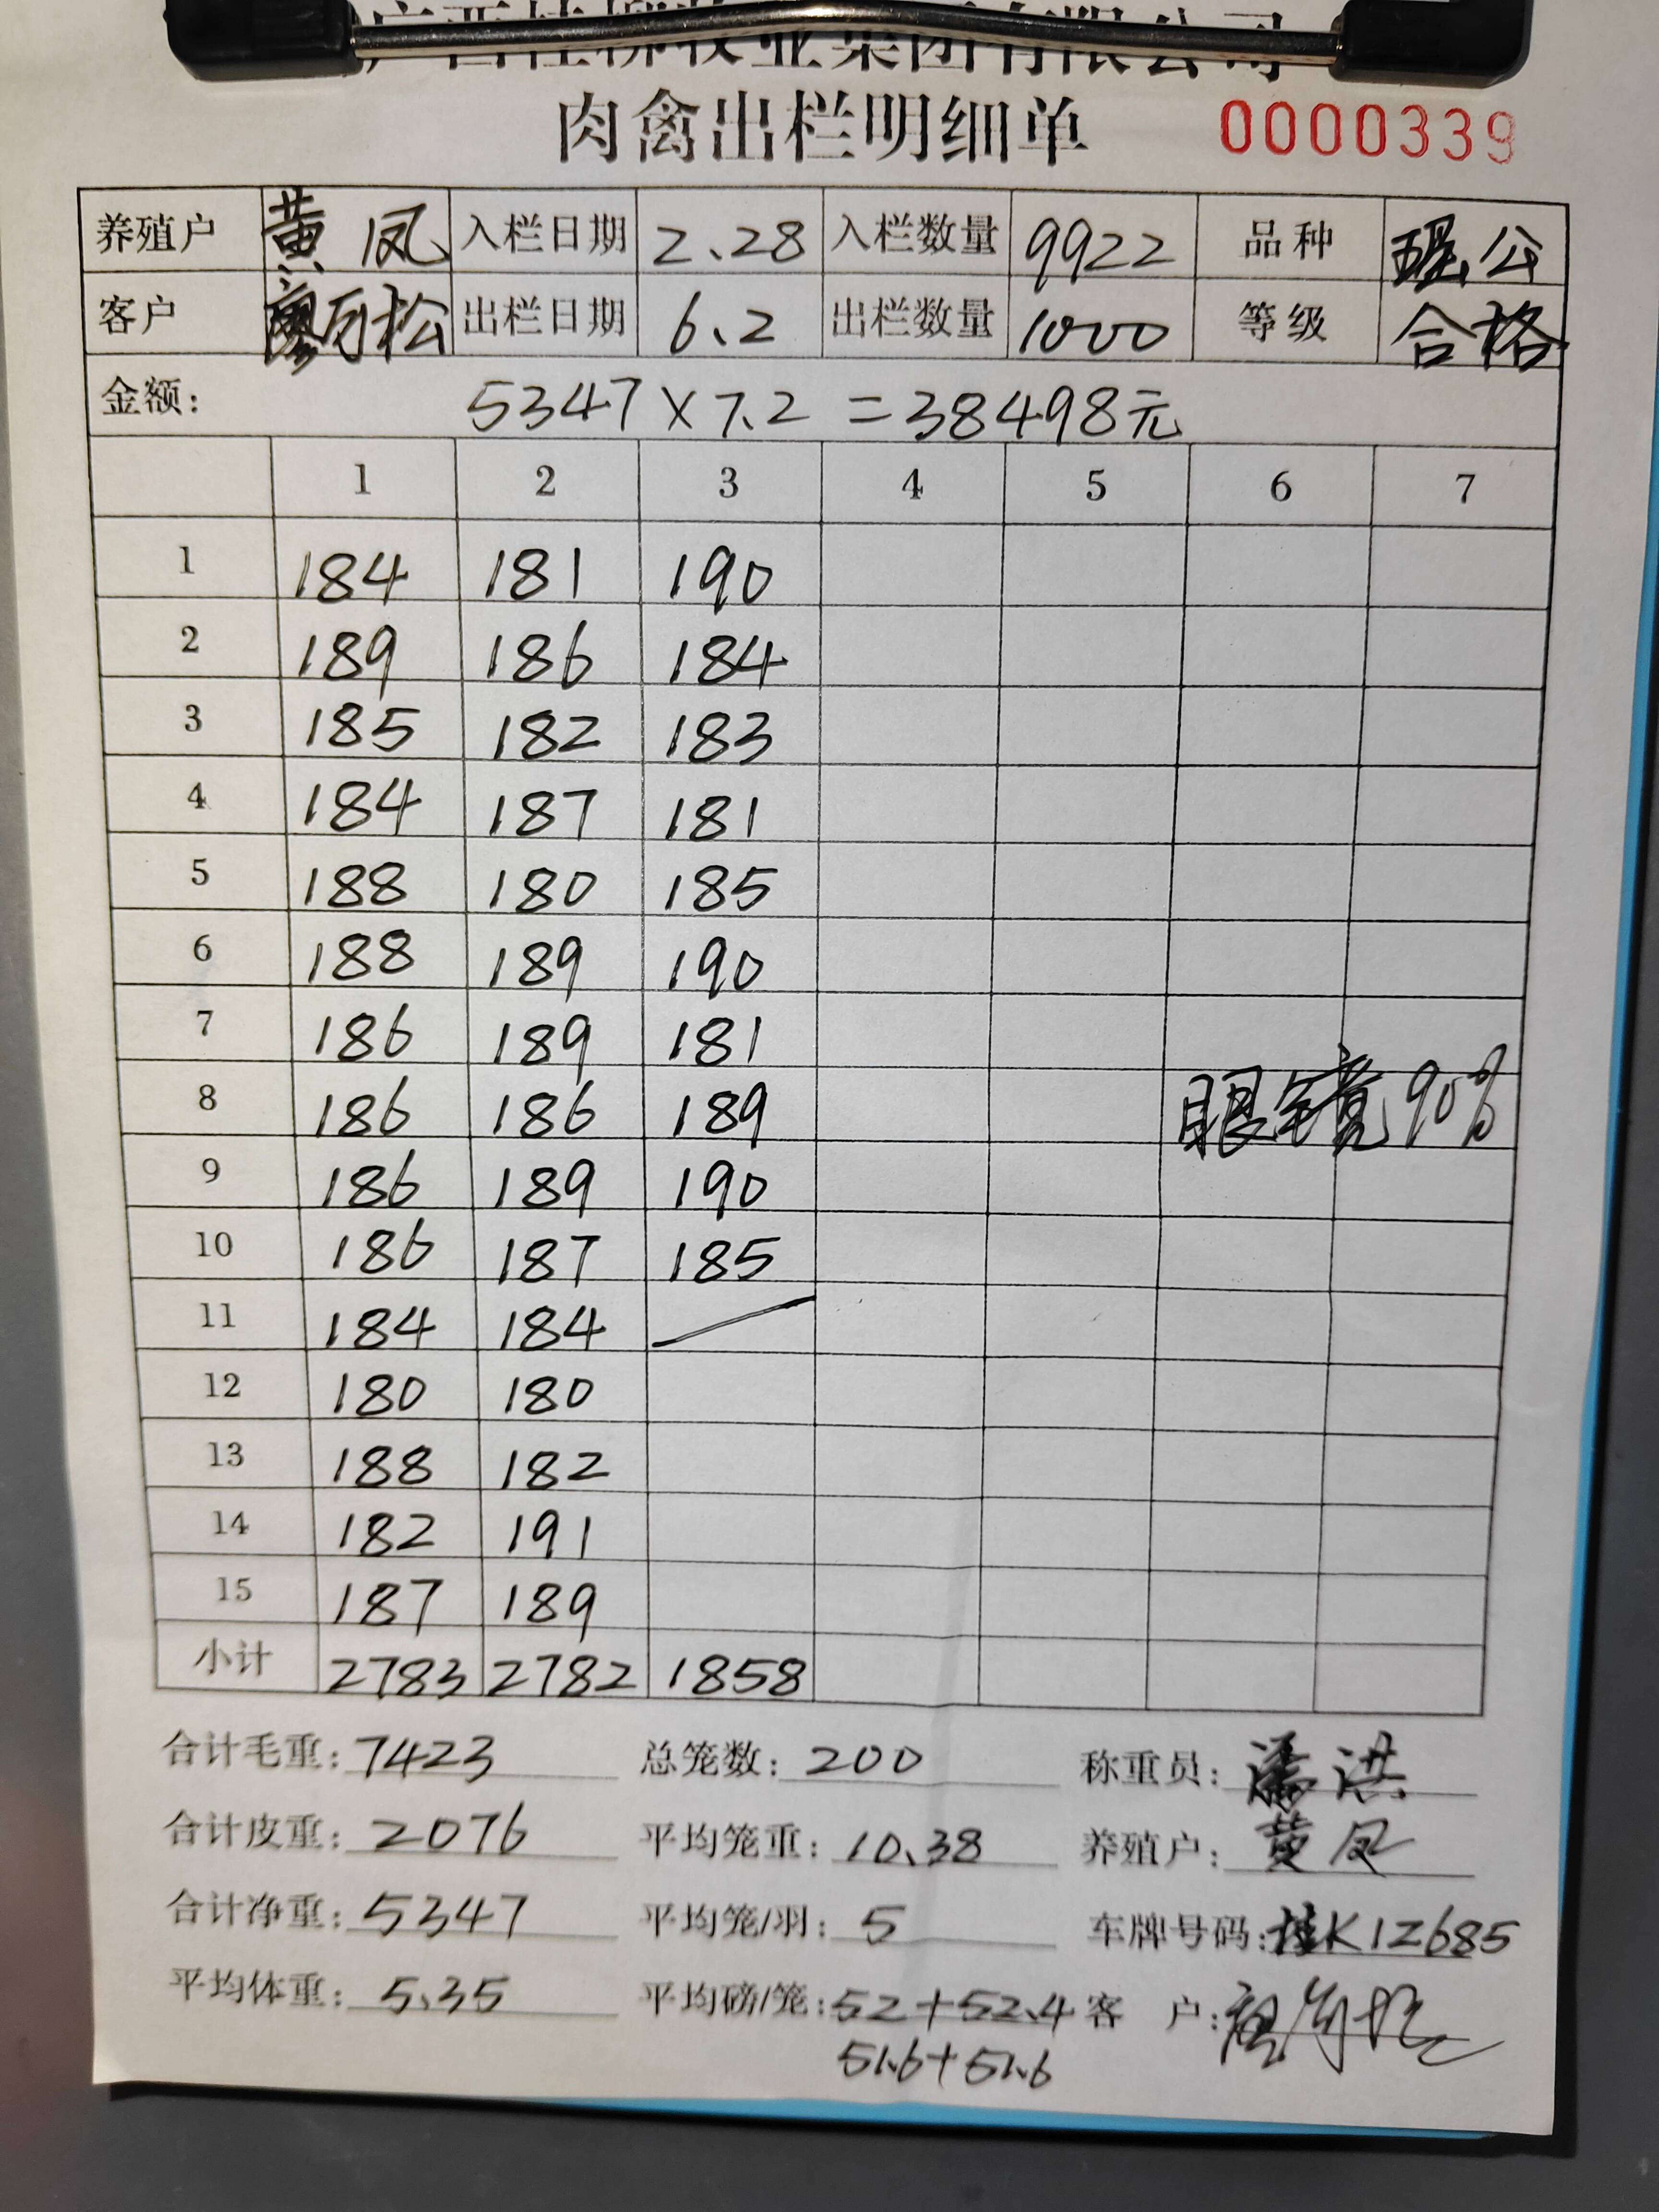 广西桂柳牧业集团有限公司
肉禽出栏明细单 0000339
养殖户 黄凤 入栏日期 2.28 入栏数量 9922 品种 公
客户 廖 松 出栏日期 6.2 出栏数量 1000 等级 合格
金额: 5347×7.2=38498元
1 2 3 4 5 6 7
1 184 181 190
2 189 186 184
3 185 182 183
4 184 187 181
5 188 180 185
6 188 189 190
7 186 189 181
8 186 186 189 眼镜90%
9 186 189 190
10 186 187 185
11 184 184
12 180 180
13 188 182
14 182 191
15 187 189
小计 2783 2782 1858
合计毛重: 7423 总笼数: 200 称重员: 潘洪
合计皮重: 2076 平均笼重: 10.38 养殖户: 黄凤
合计净重: 5347 平均笼/羽: 5 车牌号码: 桂K12685
平均体重: 5.35 平均磅/笼: 52+52.4 客户:
51.6+51.6